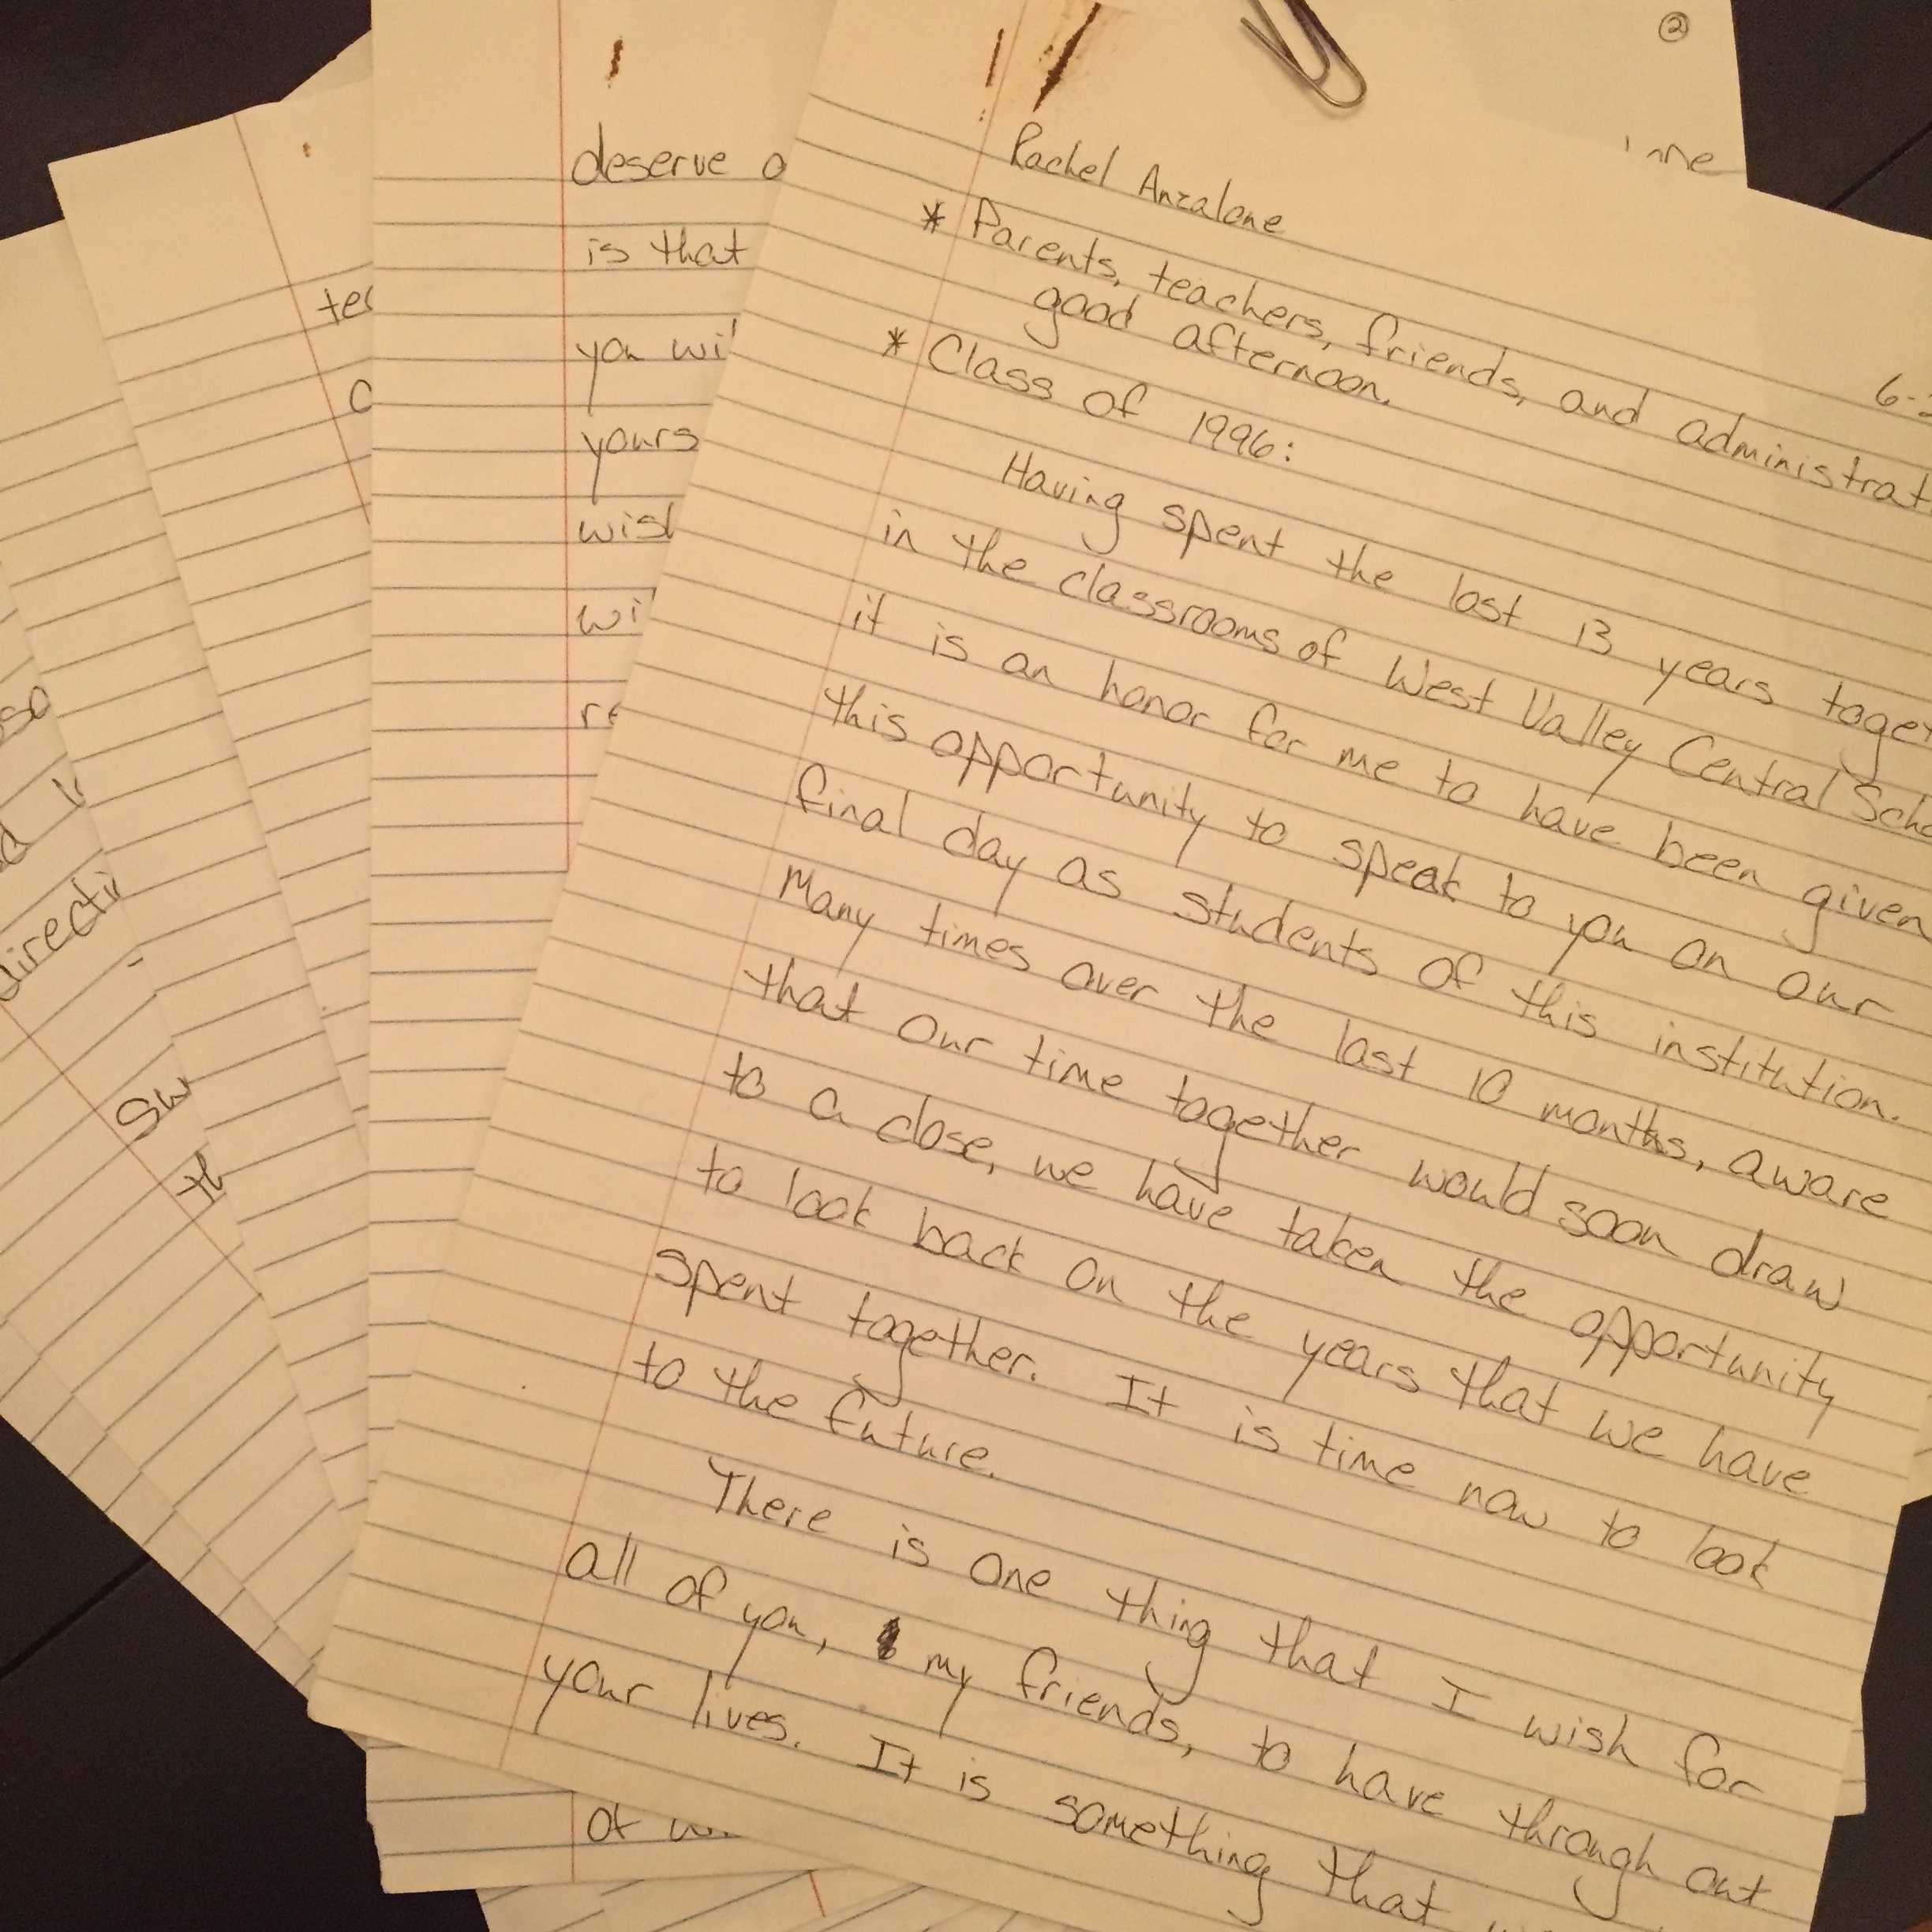 Rachel Anzalone
6-
* Parents, teachers, friends, and administrat
good afternoon.
* Class of 1996:
Having spent the last 13 years toget
in the classrooms of West Valley Central Scho
it is an honor for me to have been given
this opportunity to speak to you on our
final day as students of this institution.
Many times over the last 10 months, aware
that our time together would soon draw
to a close, we have taken the opportunity
to look back on the years that we have
spent together. It is time now to look
to the future.
There is one thing that I wish for
all of you, my friends, to have through out
your lives. It is something that
deserve
is that
you wi
yours
wish
wi
re
of
te
directi
sw
th
2
me